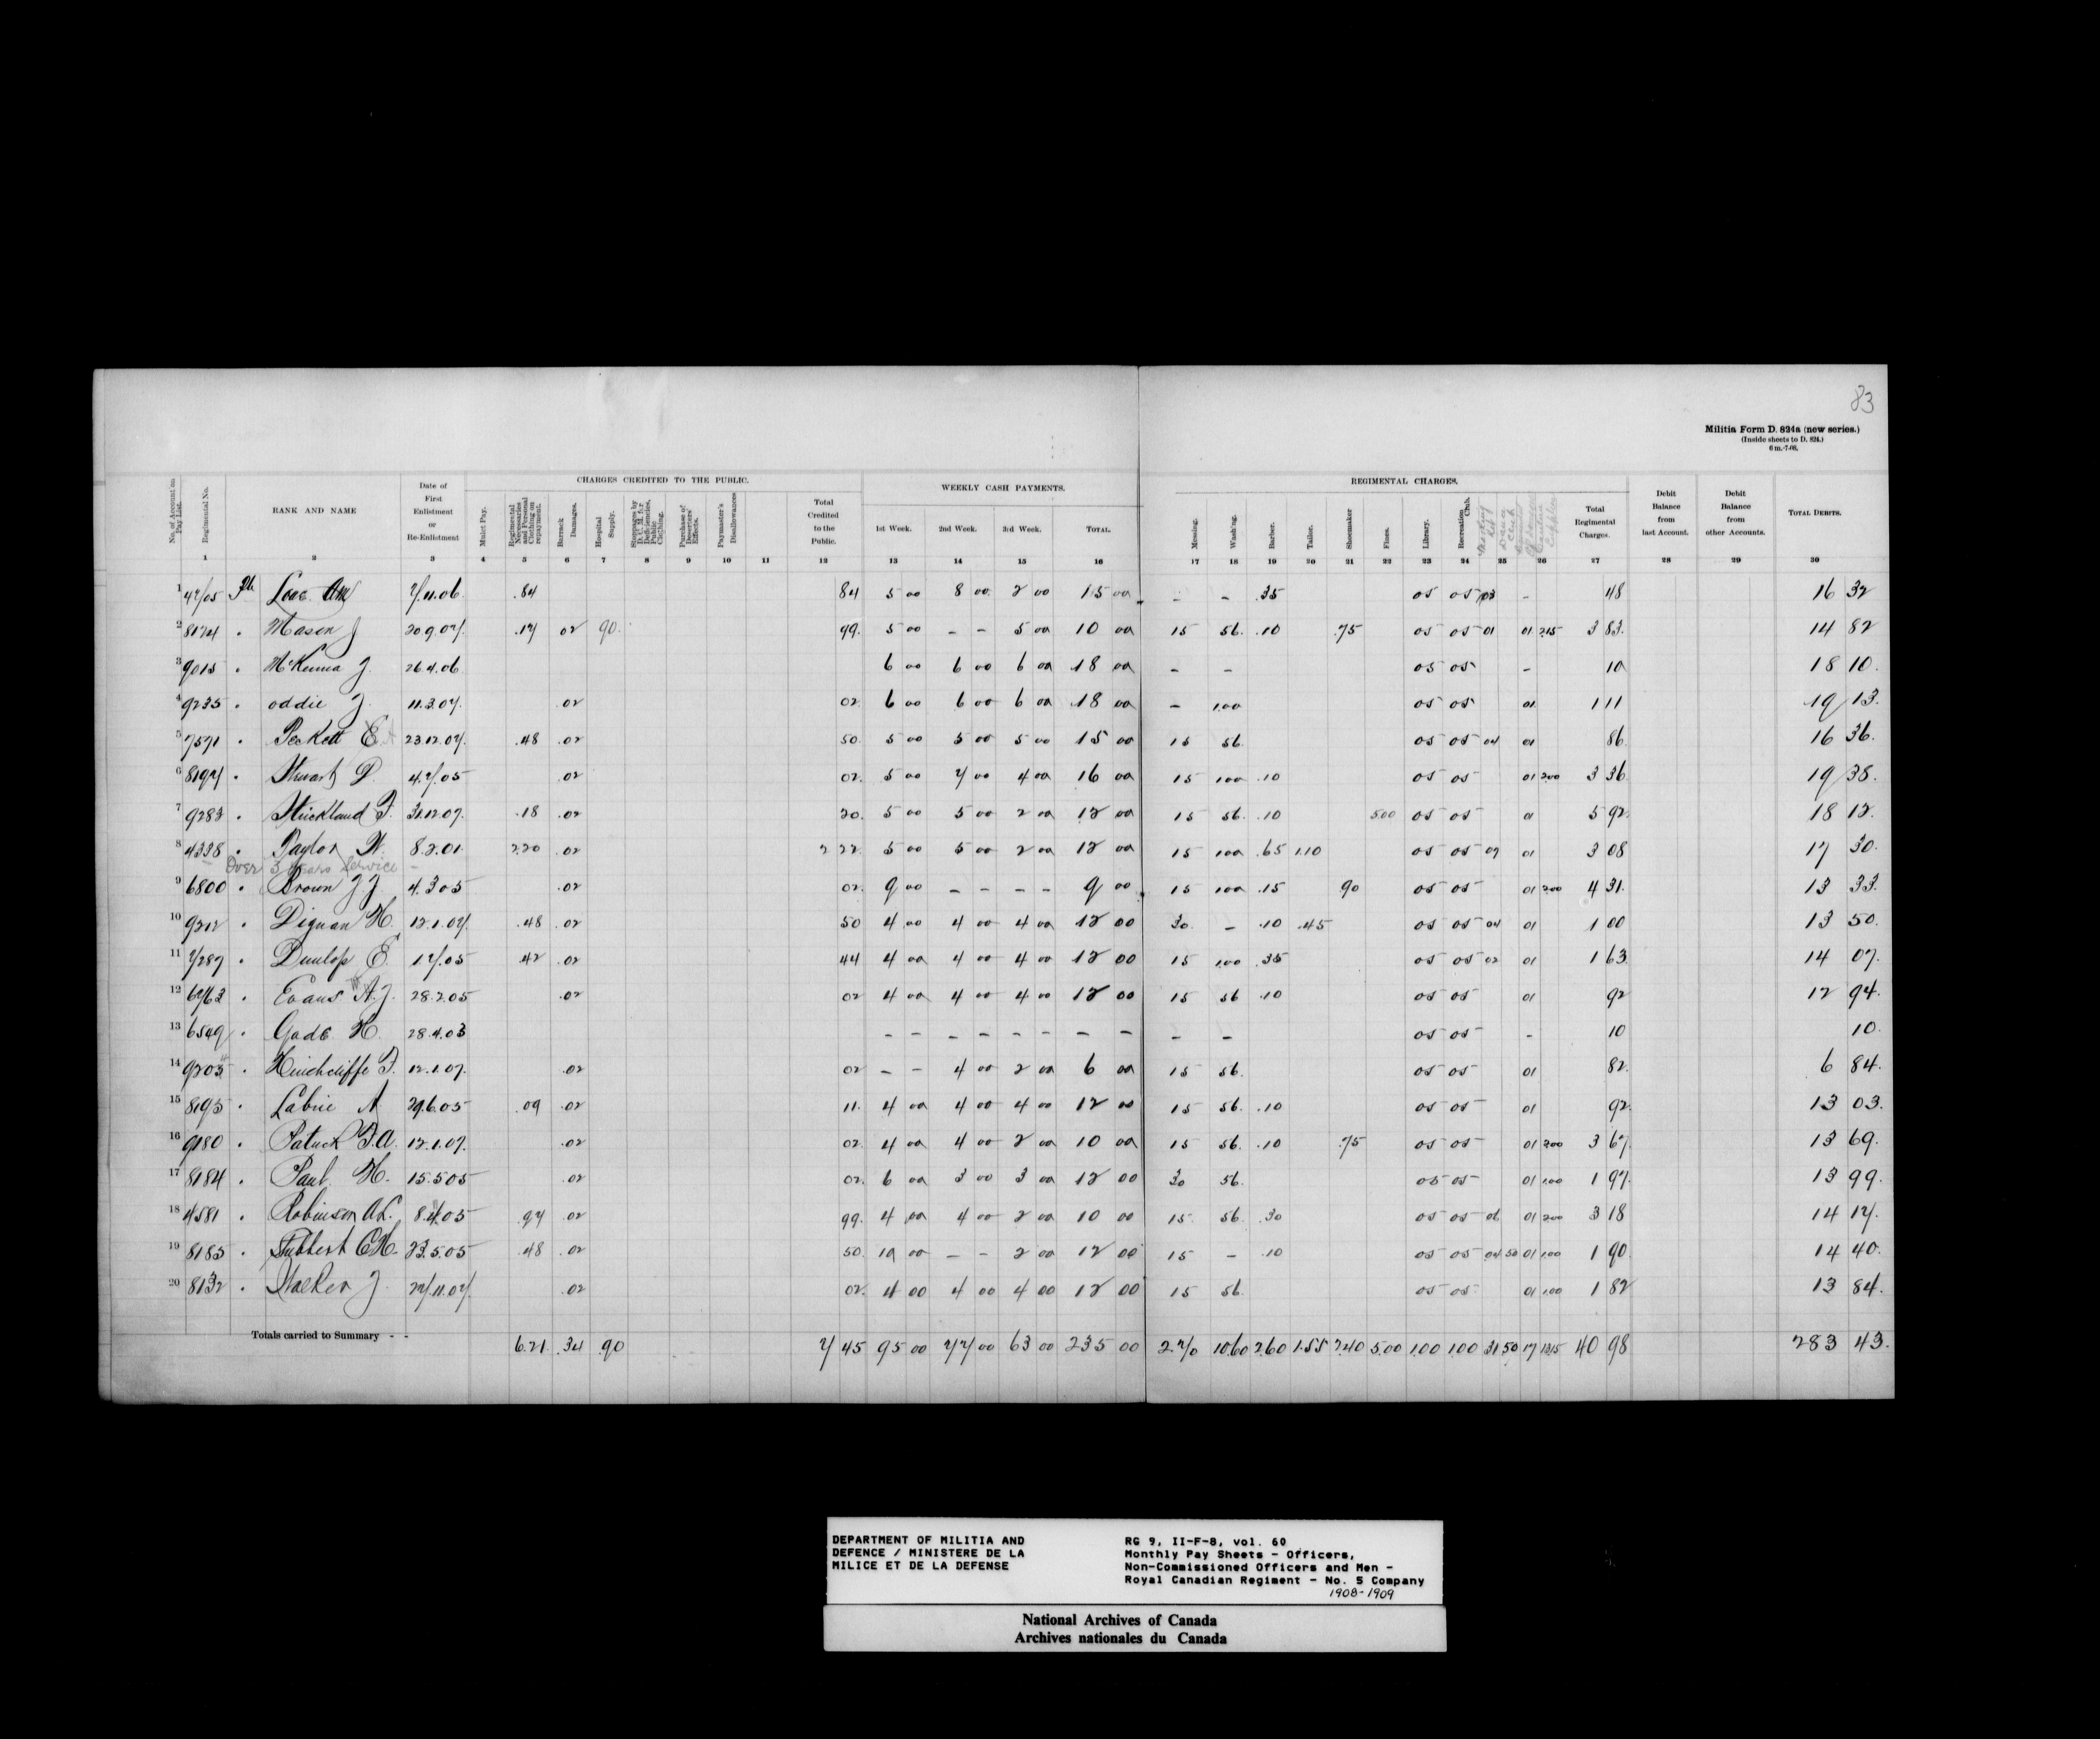 83
Militia Form D. 824a (new series.)
(Inside sheets to D. 824.)
6 m.-7-08.
No. of Account on Pay List. Regimental No. RANK AND NAME Date of First Enlistment or Re-Enlistment CHARGES CREDITED TO THE PUBLIC. WEEKLY CASH PAYMENTS. REGIMENTAL CHARGES. Debit Balance from last Account. Debit Balance from other Accounts. TOTAL DEBITS.
Mulct Pay. Regimental Necessaries and Personal Clothing on repayment. Barrack Damages. Hospital Supply. Stoppages by D. C. M. for Deficiencies, Public Clothing. Purchase of Deserters' Effects. Paymaster's Disallowances Total Credited to the Public. 1st Week. 2nd Week. 3rd Week. TOTAL. Messing. Washing. Barber. Tailor. Shoemaker Fines. Library. Recreation Club. Total Regimental Charges.
1 2 3 4 5 6 7 8 9 10 11 12 13 14 15 16 17 18 19 20 21 22 23 24 25 26 27 28 29 30
1 .84 84 5 00 8 00 2 00 15 00 - - .35 05 05 03 - 48 16 32
2 8174 . Mason J 20.9.07. .17 02 90. 99. 5 00 - - 5 00 10 00 15 56. .10 .75 05 05 01 01 2.15 3 83. 14 82
3 9015 . McKenna J. 26.4.06 6 00 6 00 6 00 18 00 - - 05 05 - 10 18 10.
4 9235 . Oddie J. 11.3.07. .02 02. 6 00 6 00 6 00 18 00 - 1.00 05 05 01 1 11 19 13.
5 7571 . Peckett E. 23.12.07. .48 .02 50. 5 00 5 00 5 00 15 00 15 56. 05 05 04 01 86. 16 36.
6 8197 . Stuart D. 4.7.05 .02 02. 5 00 7 00 4 00 16 00 15 1.00 .10 05 05 01 2.00 3 36 19 38.
7 9283 . Strickland F. 31.12.07. .18 .02 20. 5 00 5 00 2 00 12 00 15 56. .10 5.00 05 05 01 5 92. 18 12.
8 4338 . Taylor W. 8.2.01 2.20 .02 2 22. 5 00 5 00 2 00 12 00 15 1.00 .65 1.10 05 05 07 01 3 08 17 30.
Over 3 Years Service
9 6800 . Brown J.J. 4.3.05 .02 02. 9 00 - - - - 9 00 15 1.00 .15 90 05 05 01 2.00 4 31. 13 33.
10 9212 . Dignan H. 12.1.07. .48 .02 50 4 00 4 00 4 00 12 00 30. - .10 .45 05 05 04 01 1 00 13 50.
11 7289 . Dunlop E. 1.7.05 .42 .02 44 4 00 4 00 4 00 12 00 15 1.00 .35 05 05 02 01 1 63 14 07.
12 6763 . Evans A.J. 28.2.05 .02 02 4 00 4 00 4 00 12 00 15 56 .10 05 05 01 92 12 94.
13 6549 . Gade H. 28.4.03 - - - - - - - - - - 05 05 - 10 10.
14 9205 . Hinchcliffe F. 12.1.07. .02 02 - - 4 00 2 00 6 00 15 56. 05 05 01 82. 6 84.
15 8195 . Labrie A 29.6.05 .09 .02 11. 4 00 4 00 4 00 12 00 15 56. .10 05 05 01 92. 13 03.
16 9180 . Patrick F.A. 12.1.07. .02 02. 4 00 4 00 2 00 10 00 15 56. .10 .75 05 05 01 2.00 3 67. 13 69.
17 8184 . Paul H. 15.5.05 .02 02. 6 00 3 00 3 00 12 00 30 56. 05 05 01 1.00 1 97. 13 99.
18 4581 . Robinson A.L. 8.4.05 .97 .02 99. 4 00 4 00 2 00 10 00 15. 56. .30 05 05 01 2.00 3 18 14 17.
19 8185 . Tubbert C.H. 23.5.05 .48 .02 50. 10 00 - - 2 00 12 00 15 - .10 05 05 04 50 01 1.00 1 90. 14 40.
20 8132 . Walker J. 27.11.07. .02 02. 4 00 4 00 4 00 12 00 15 56. 05 05 01 1.00 1 82 13 84.
Totals carried to Summary - - 6.21. .34 .90 7 45 95 00 77 00 63 00 235 00 2.70 10.60 2.60 1.55 2.40 5.00 1.00 1.00 31 50 17 13.15 40 98 283 43.
DEPARTMENT OF MILITIA AND
DEFENCE / MINISTERE DE LA
MILICE ET DE LA DEFENSE
RG 9, II-F-8, vol. 60
Monthly Pay Sheets - Officers,
Non-Commissioned Officers and Men -
Royal Canadian Regiment - No. 5 Company
1908-1909
National Archives of Canada
Archives nationales du Canada